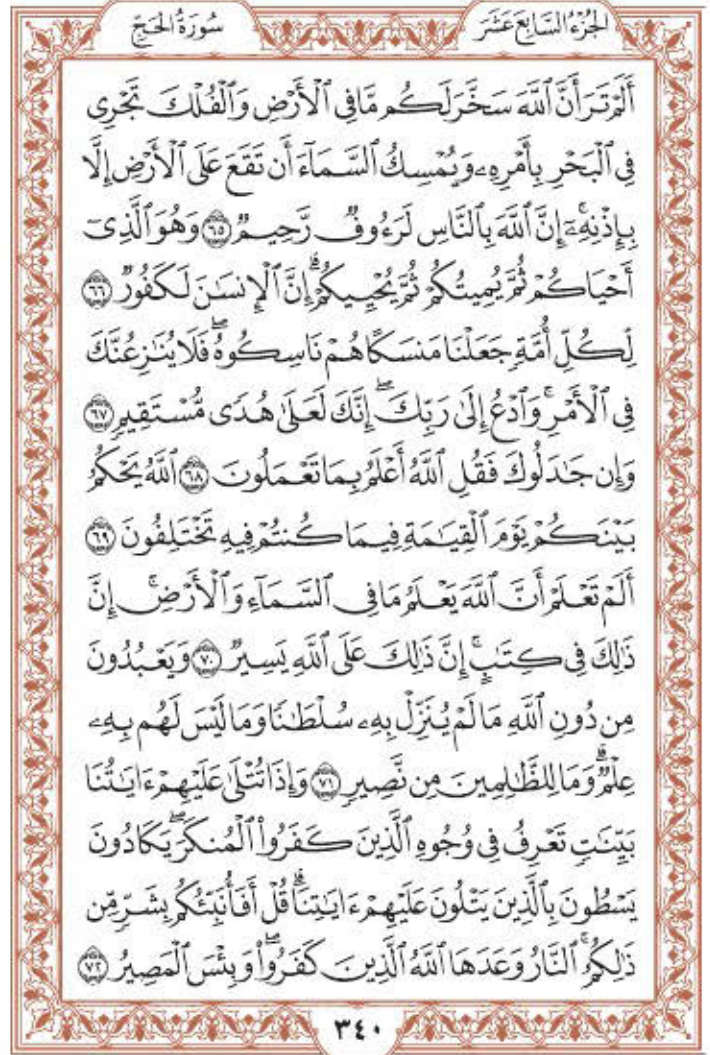 الجُزْءُ السَّابِعَ عَشَرَ
سُورَةُ الحَجِّ
أَلَمْ تَرَ أَنَّ ٱللَّهَ سَخَّرَ لَكُم مَّا فِى ٱلْأَرْضِ وَٱلْفُلْكَ تَجْرِى
فِى ٱلْبَحْرِ بِأَمْرِهِۦ وَيُمْسِكُ ٱلسَّمَآءَ أَن تَقَعَ عَلَى ٱلْأَرْضِ إِلَّا
بِإِذْنِهِۦٓ ۚ إِنَّ ٱللَّهَ بِٱلنَّاسِ لَرَءُوفٌ رَّحِيمٌ ٦٥ وَهُوَ ٱلَّذِىٓ
أَحْيَاكُمْ ثُمَّ يُمِيتُكُمْ ثُمَّ يُحْيِيكُمْ ۗ إِنَّ ٱلْإِنسَٰنَ لَكَفُورٌ ٦٦
لِّكُلِّ أُمَّةٍ جَعَلْنَا مَنسَكًا هُمْ نَاسِكُوهُ ۖ فَلَا يُنَٰزِعُنَّكَ
فِى ٱلْأَمْرِ ۚ وَٱدْعُ إِلَىٰ رَبِّكَ ۖ إِنَّكَ لَعَلَىٰ هُدًى مُّسْتَقِيمٍ ٦٧
وَإِن جَٰدَلُوكَ فَقُلِ ٱللَّهُ أَعْلَمُ بِمَا تَعْمَلُونَ ٦٨ ٱللَّهُ يَحْكُمُ
بَيْنَكُمْ يَوْمَ ٱلْقِيَٰمَةِ فِيمَا كُنتُمْ فِيهِ تَخْتَلِفُونَ ٦٩
أَلَمْ تَعْلَمْ أَنَّ ٱللَّهَ يَعْلَمُ مَا فِى ٱلسَّمَآءِ وَٱلْأَرْضِ ۗ إِنَّ
ذَٰلِكَ فِى كِتَٰبٍ ۚ إِنَّ ذَٰلِكَ عَلَى ٱللَّهِ يَسِيرٌ ٧٠ وَيَعْبُدُونَ
مِن دُونِ ٱللَّهِ مَا لَمْ يُنَزِّلْ بِهِۦ سُلْطَٰنًا وَمَا لَيْسَ لَهُم بِهِۦ
عِلْمٌ ۗ وَمَا لِلظَّٰلِمِينَ مِن نَّصِيرٍ ٧١ وَإِذَا تُتْلَىٰ عَلَيْهِمْ ءَايَٰتُنَا
بَيِّنَٰتٍ تَعْرِفُ فِى وُجُوهِ ٱلَّذِينَ كَفَرُوا۟ ٱلْمُنكَرَ ۖ يَكَادُونَ
يَسْطُونَ بِٱلَّذِينَ يَتْلُونَ عَلَيْهِمْ ءَايَٰتِنَا ۗ قُلْ أَفَأُنَبِّئُكُم بِشَرٍّ مِّن
ذَٰلِكُمُ ۗ ٱلنَّارُ وَعَدَهَا ٱللَّهُ ٱلَّذِينَ كَفَرُوا۟ ۖ وَبِئْسَ ٱلْمَصِيرُ ٧٢
٣٤٠